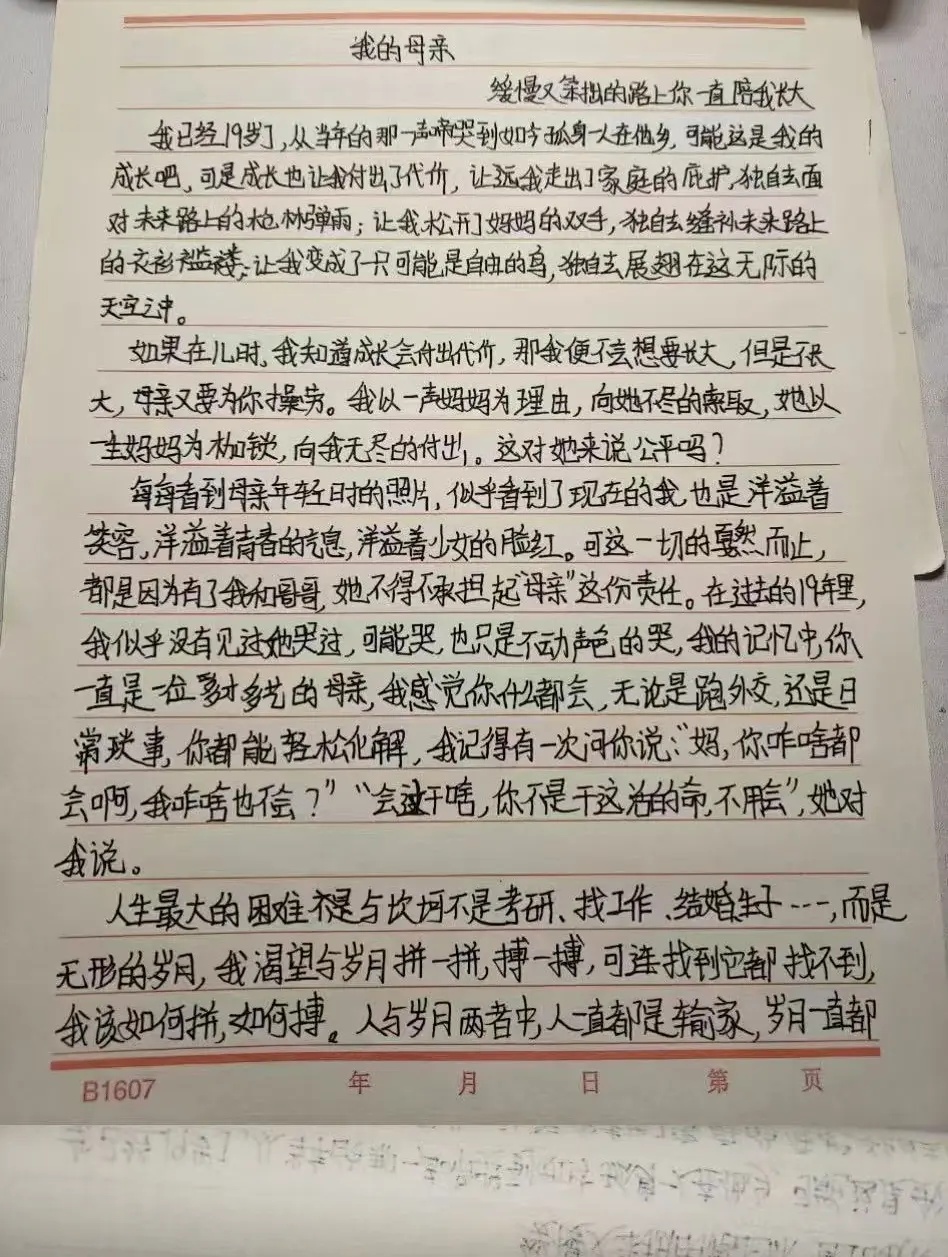 我的母亲
缓慢又笨拙的路上你一直陪我长大
我已经19岁了,从当年的那一声啼哭到如今孤身一人在他乡,可能这是我的
成长吧,可是成长也让我付出了代价,让远我走出了家庭的庇护,独自去面
对未来路上的枪林弹雨;让我松开了妈妈的双手,独自去缝补未来路上
的衣衫褴褛;让我变成了一只可能是自由的鸟,独自去展翅在这无际的
天空之中。
如果在儿时,我知道成长会付出代价,那我便不会想要长大,但是不长
大,母亲又要为你操劳。我以一声妈妈为理由,向她不尽的索取,她以
一生妈妈为枷锁,向我无尽的付出。这对她来说公平吗?
每每看到母亲年轻时的照片,似乎看到了现在的我,也是洋溢着
笑容,洋溢着青春的气息,洋溢着少女的脸红。可这一切的戛然而止,
都是因为有了我和哥哥,她不得不承担起“母亲”这份责任。在过去的19年里,
我似乎没有见过她哭过,可能哭,也只是不动声色的哭,我的记忆中,你
一直是一位多才多艺的母亲,我感觉你什么都会,无论是跑外交,还是日
常琐事,你都能轻松化解,我记得有一次问你说:“妈,你咋啥都
会啊,我咋啥也不会?”“会这干啥,你不是干这活的命,不用会”,她对
我说。
人生最大的困难不是与坎坷不是考研、找工作、结婚生子……,而是
无形的岁月,我渴望与岁月拼一拼,搏一搏,可连找到它都找不到,
我该如何拼,如何搏。人与岁月两者中,人一直都是输家,岁月一直都
B1607 年 月 日 第 页